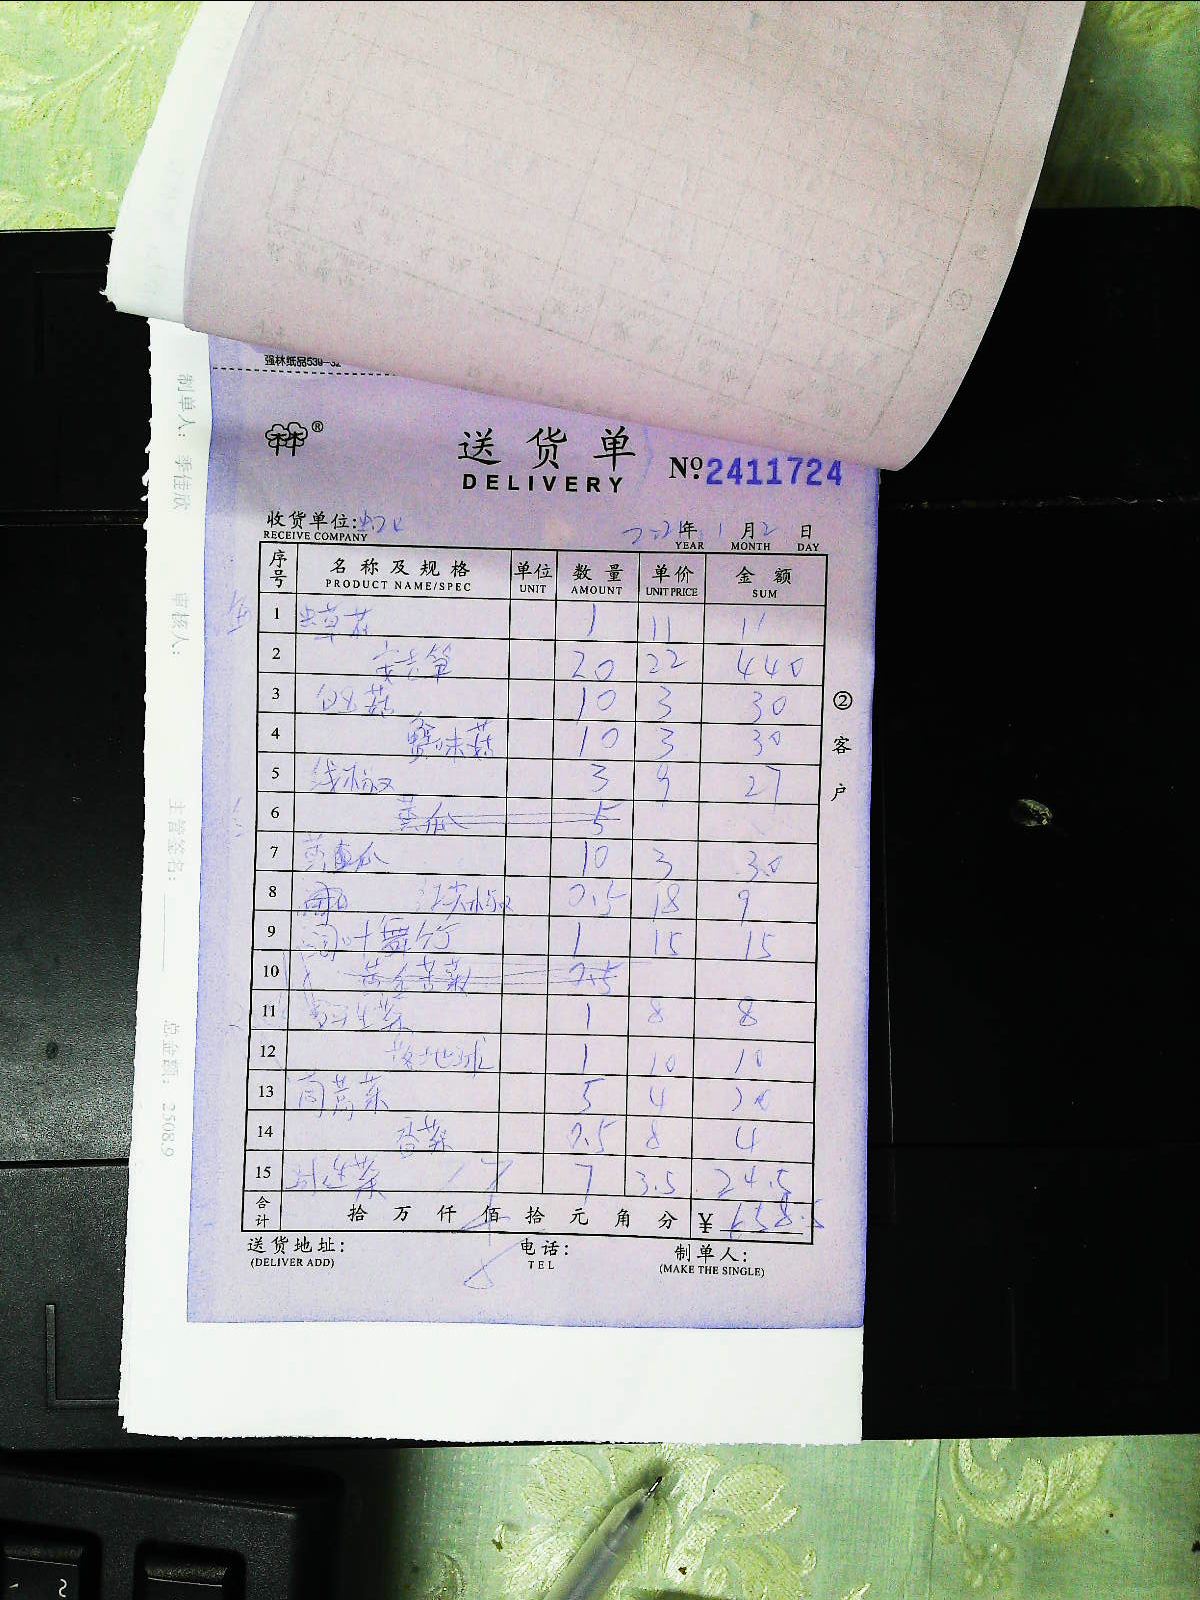 强林纸品539-32
®
送货单
DELIVERY
№ 2411724
收货单位:
RECEIVE COMPANY
2021年 1月2日
YEAR MONTH DAY
序号 名称及规格 单位 数量 单价 金额
PRODUCT NAME/SPEC UNIT AMOUNT UNIT PRICE SUM
1 虫草花 1 11 11
2 20 22 440
3 白玉菇 10 3 30
4 蟹味菇 10 3 30
5 线椒 3 9 27
6 黄瓜 5
7 黄瓜 10 3 30
8 红尖椒 0.5 18 9
9 1 15 15
10 黄金苦菊 0.5
11 生菜 1 8 8
12 落地球 1 10 10
13 茼蒿菜 5 4 20
14 香菜 0.5 8 4
15 7 3.5 24.5
合计 拾万仟佰拾元角分 ¥ 658.5
送货地址:
(DELIVER ADD)
电话:
TEL
制单人:
(MAKE THE SINGLE)
②客户
制单人: 李佳欣
审核人:
主管签名:
总金额: 2508.9